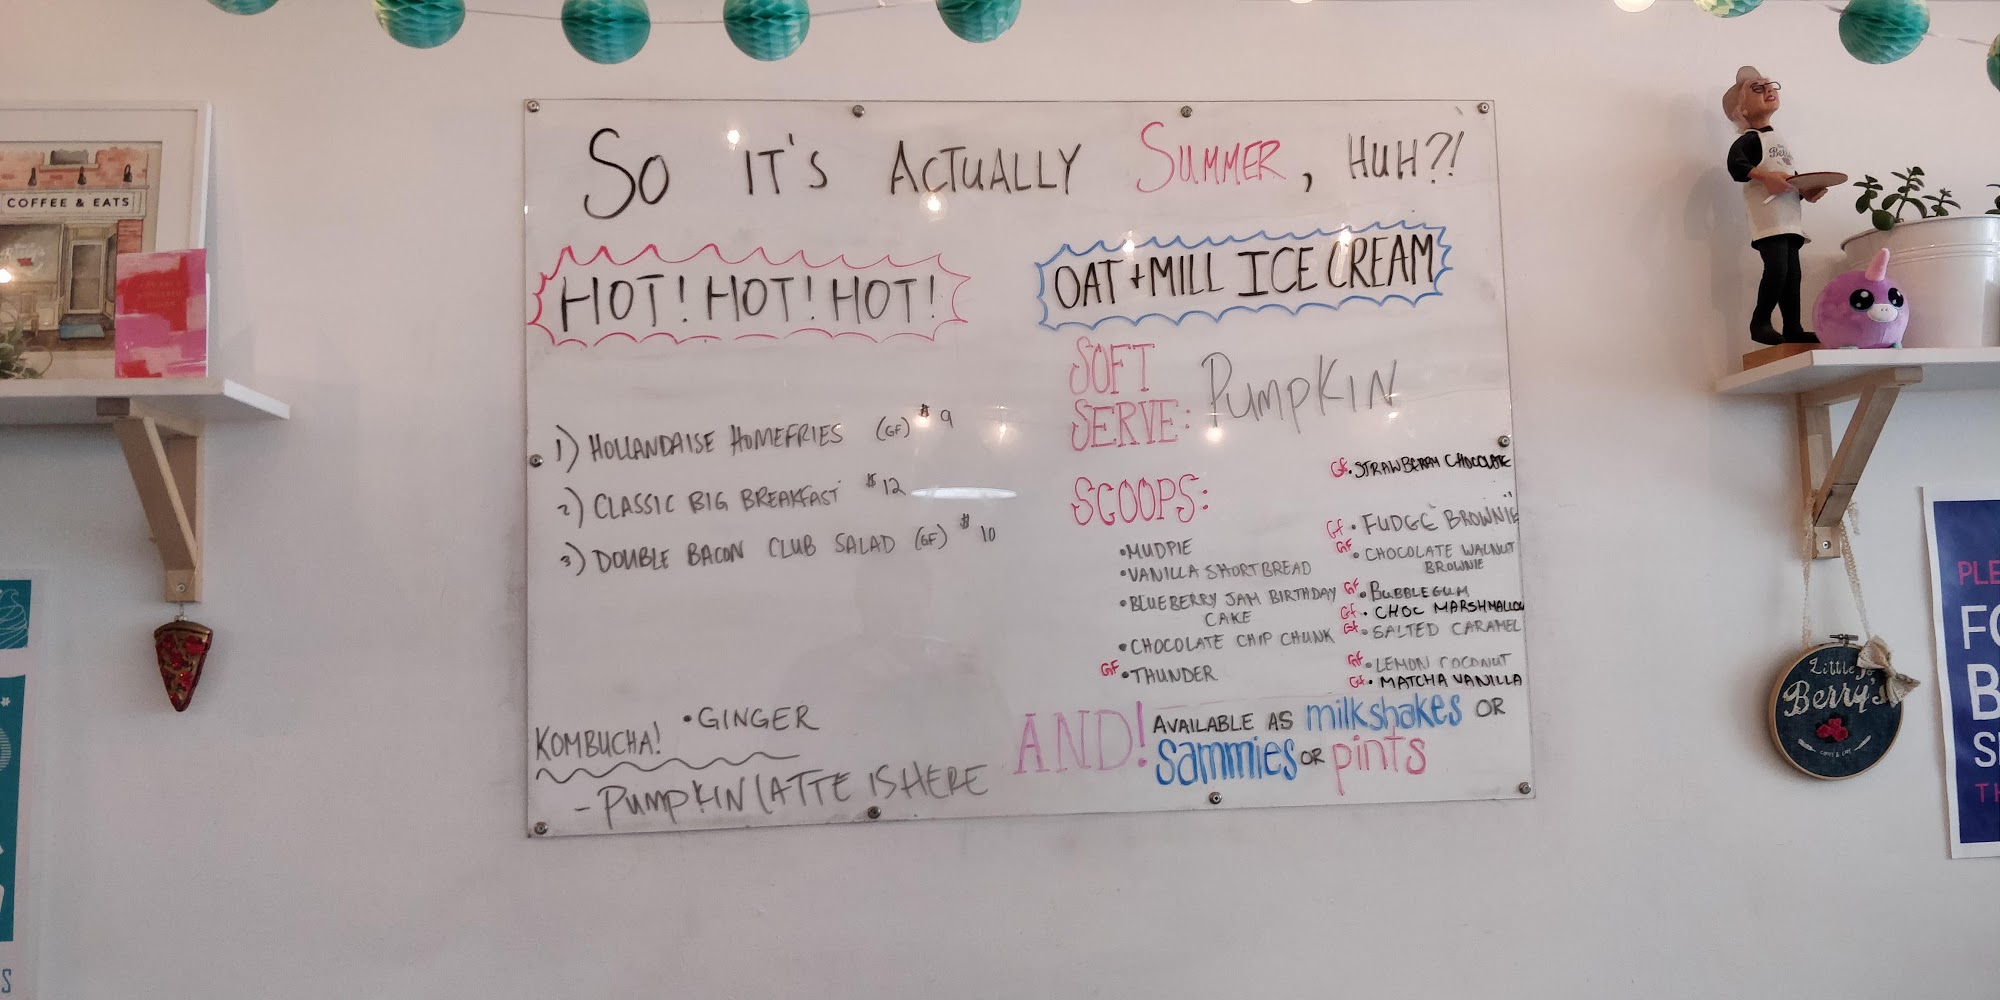 SO IT'S ACTUALLY SUMMER, HUH?!
HOT! HOT! HOT!
1) HOLLANDAISE HOMEFRIES (GF) $9
2) CLASSIC BIG BREAKFAST $12
3) DOUBLE BACON CLUB SALAD (GF) $10
KOMBUCHA! •GINGER
- PUMPKIN LATTE IS HERE
OAT + MILL ICE CREAM
SOFT
SERVE: PUMPKIN
SCOOPS:
•MUDPIE
•VANILLA SHORTBREAD
•BLUEBERRY JAM BIRTHDAY
CAKE
•CHOCOLATE CHIP CHUNK
GF •THUNDER
GF •STRAWBERRY CHOCOLATE
GF •FUDGE BROWNIE
GF •CHOCOLATE WALNUT
BROWNIE
GF •BUBBLEGUM
GF •CHOC MARSHMALLOW
GF •SALTED CARAMEL
GF •LEMON COCONUT
GF •MATCHA VANILLA
AND! AVAILABLE AS milkshakes OR
sammies OR pints
COFFEE & EATS
Little Jo
Berry's
PLE
FO
B
S
TH
S